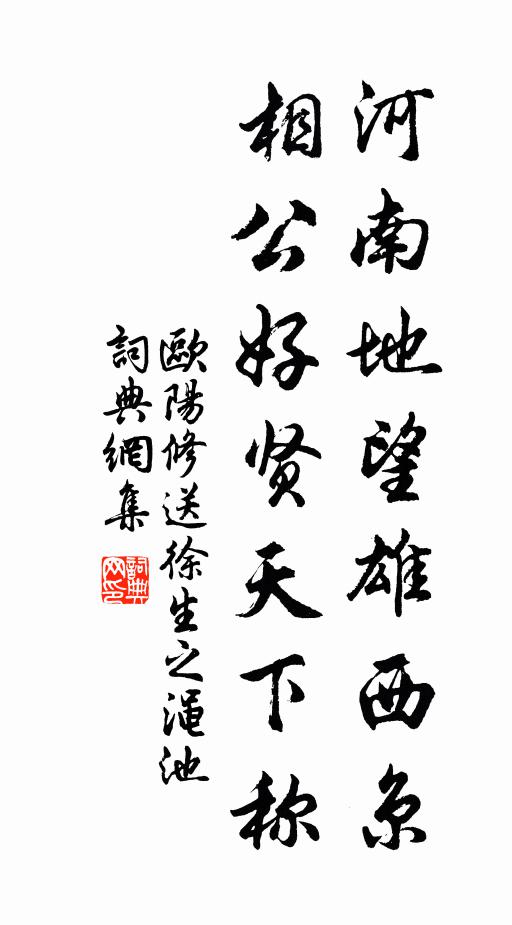 河南地望雄西京
相公好贤天下称
歐陽修送徐生之渑池
詞典網集
詞典网印